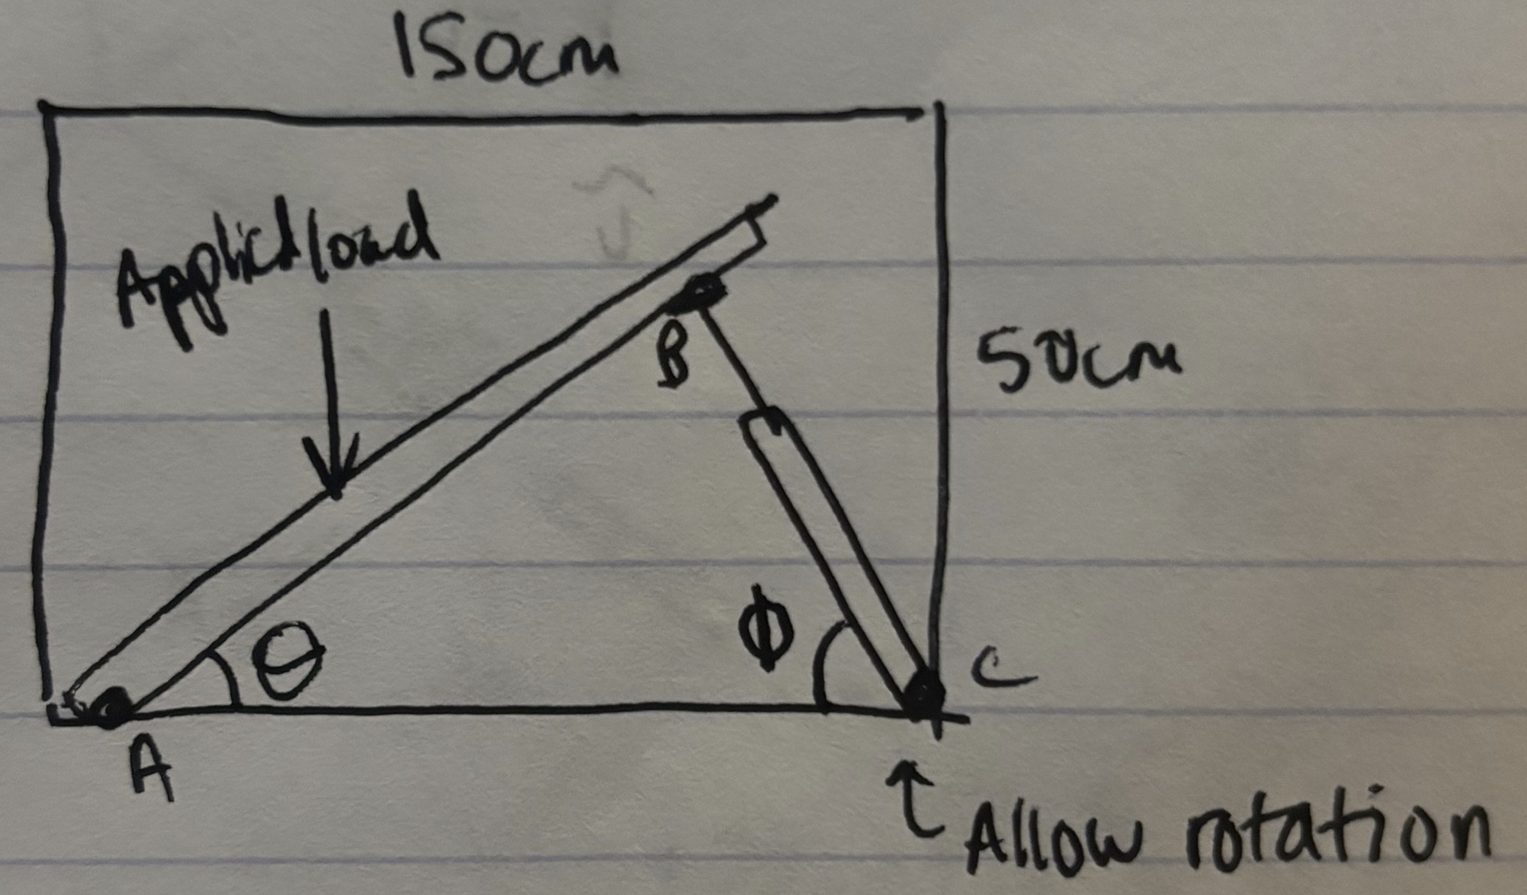 150cm
Applied load
B
50cm
θ
ϕ
C
A
↑ Allow rotation